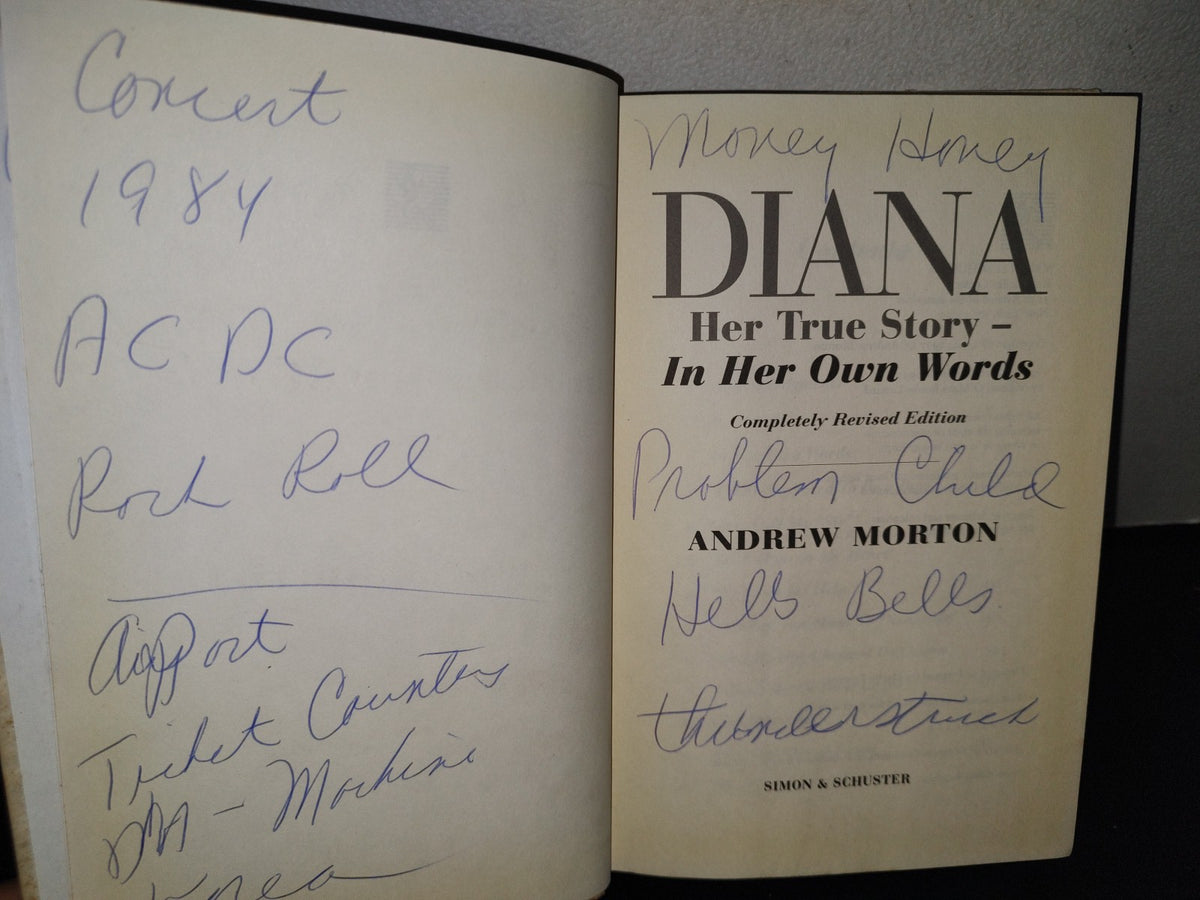 Concert
1984
AC DC
Rock Roll
Airport
Ticket Counters
Machine
Korea
Money Honey
DIANA
Her True Story –
In Her Own Words
Completely Revised Edition
Problem Child
ANDREW MORTON
Hells Bells
thunderstruck
SIMON & SCHUSTER